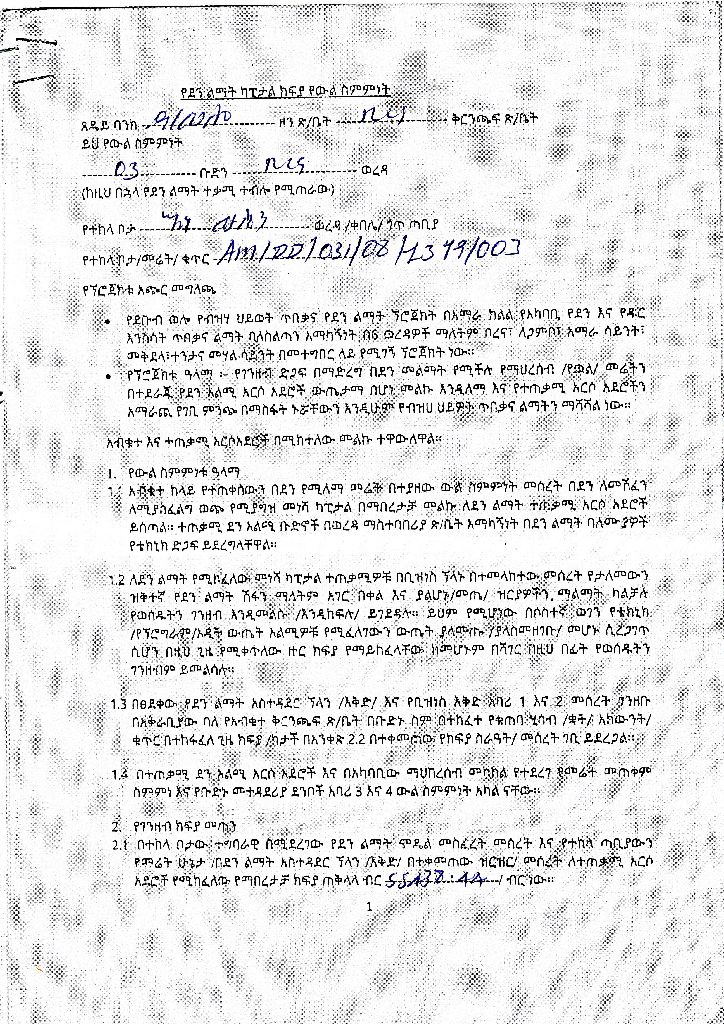 የደን ልማት ካፒታል ክፍያ የውል ስምምነት
ጸደይ ባንክ ዞን ጽ/ቤት ቅርንጫፍ ጽ/ቤት
ይህ የውል ስምምነት
03 ቡድን ወረዳ
(ከዚህ በኋላ የደን ልማት ተቃሚ ተብሎ የሚጠራው)
የተከላ ቦታ ወረዳ /ቀበሌ/ ጎጥ ጣቢያ
የተከላ ቦታ/መሬት/ ቁጥር
የፕሮጀክቱ አጭር መግለጫ
• የደቡብ ወሎ የብዝሃ ህይወት ጥበቃና የደን ልማት ፕሮጀክት በአማራ ክልል የአካባቢ የደን እና የዱር
እንስሳት ጥበቃና ልማት ባለስልጣን አማካኝነት በ6 ወረዳዎች ማለትም በረና፣ ለጋምቦ፣ አማራ ሳይንት፣
መቅደላ፣ተንታና መሃል ሳይንት በመተግበር ላይ የሚገኝ ፕሮጀክት ነው።
• የፕሮጀክቱ ዓላማ ፡- የገንዘብ ድጋፍ በማድረግ በደን መልማት የሚችሉ የማህረሰብ /የወል/ መሬትን
በተደራጁ የደን አልሚ አርሶ አደሮች ውጤታማ በሆነ መልኩ እንዲለማ እና የተጠቃሚ አርሶ አደሮችን
አማራጪ የገቢ ምንጭ በማስፋት ኑሯቸውን እንዲሁም የብዝሀ ህይዎት ጥበቃና ልማትን ማሻሻል ነው።
አብቁተ እና ተጠቃሚ አርሶአደሮች በሚከተለው መልኩ ተዋውለዋል።
1. የውል ስምምነቱ ዓላማ
1.1 አብቁተ ከላይ የተጠቀሰውን በደን የሚለማ መሬት በተያዘው ውል ስምምነት መሰረት በደን ለመሸፈን
ለሚያስፈልግ ወጭ የሚያግዝ መነሻ ካፒታል በማበረታቻ መልኩ ለደን ልማት ተጠቃሚ አርሶ አደሮች
ይሰጣል። ተጠቃሚ ደን አልሚ ቡድኖች በወረዳ ማስተባበሪያ ጽ/ቤት አማካኝነት በደን ልማት ባለሙያዎች
የቴክኒክ ድጋፍ ይደረግላቸዋል።
1.2 ለደን ልማት የሚከፈለው መነሻ ካፒታል ተጠቃሚዎቹ በቢዝነስ ፕላኑ በተመላከተው መሰረት የታለመውን
ዝቅተኛ የደን ልማት ሽፋን ማለትም አገር በቀል እና ያልሆነ/መጤ/ ዝርያዎችን ማልማት ካልቻሉ
የወሰዱትን ገንዘብ እንዲመልሱ /እንዲከፍሉ/ ይገደዳሉ። ይህም የሚሆነው በሶስተኛ ወገን የቴክኒክ
ሲሆን በዚህ ጊዜ የሚቀጥለው ዙር ክፍያ የማይከፈላቸው ከመሆኑም በሻገር ከዚህ በፊት የወሰዱትን
ገንዘብም ይመልሳሉ።
1.3 በፀደቀው የደን ልማት አስተዳደር ፕላን /እቅድ/ እና የቢዝነስ እቅድ አባሪ 1 እና 2 መሰረት ገንዘቡ
በአቅራቢያው ባለ የአብቁተ ቅርንጫፍ ጽ/ቤት በቡድኑ ስም በተከፈተ የቁጠባ ሂሳብ /ቋት/ አካውንት/
ቁጥር በተከፋፈለ ጊዜ ክፍያ /ከታች በአንቀጽ 2.2 በተቀመጠው የክፍያ ስራዓት/ መሰረት ገቢ ይደረጋል።
1.4 በተጠቃሚ ደን አልሚ አርሶ አደሮች እና በአካባቢው ማህበረሰብ መካከል የተደረገ የመሬት መጠቀም
ስምምነ እና የቡድኑ መተዳደሪያ ደንቦች አባሪ 3 እና 4 ውል ስምምነት አካል ናቸው።
2. የገንዘብ ክፍያ መጠን
2.1 በተከላ ቦታው ተግባራዊ በሚደረገው የደን ልማት ሞዴል መስፈረት መሰረት እና የተከላ ጣቢያውን
የመሬት ሁኔታ /በደን ልማት አስተዳደር ፕላን /እቅድ/ በተቀመጠው ዝርዝር/ መሰረት ለተጠቃሚ አርሶ
አደሮች የሚከፈለው የማበረታቻ ክፍያ ጠቅላላ ብር / ብር ነው።
1